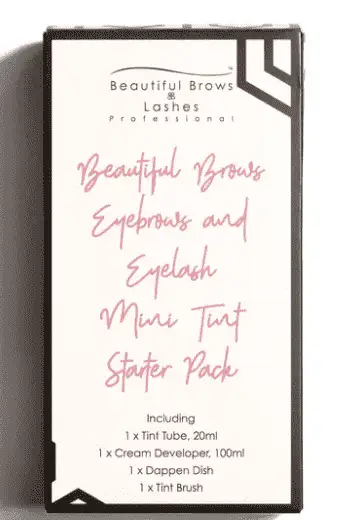 Beautiful Brows
&
Lashes
Professional
Beautiful Brows
Eyebrows and
Eyelash
Mini Tint
Starter Pack
Including
1 x Tint Tube, 20ml
1 x Cream Developer, 100ml
1 x Dappen Dish
1 x Tint Brush